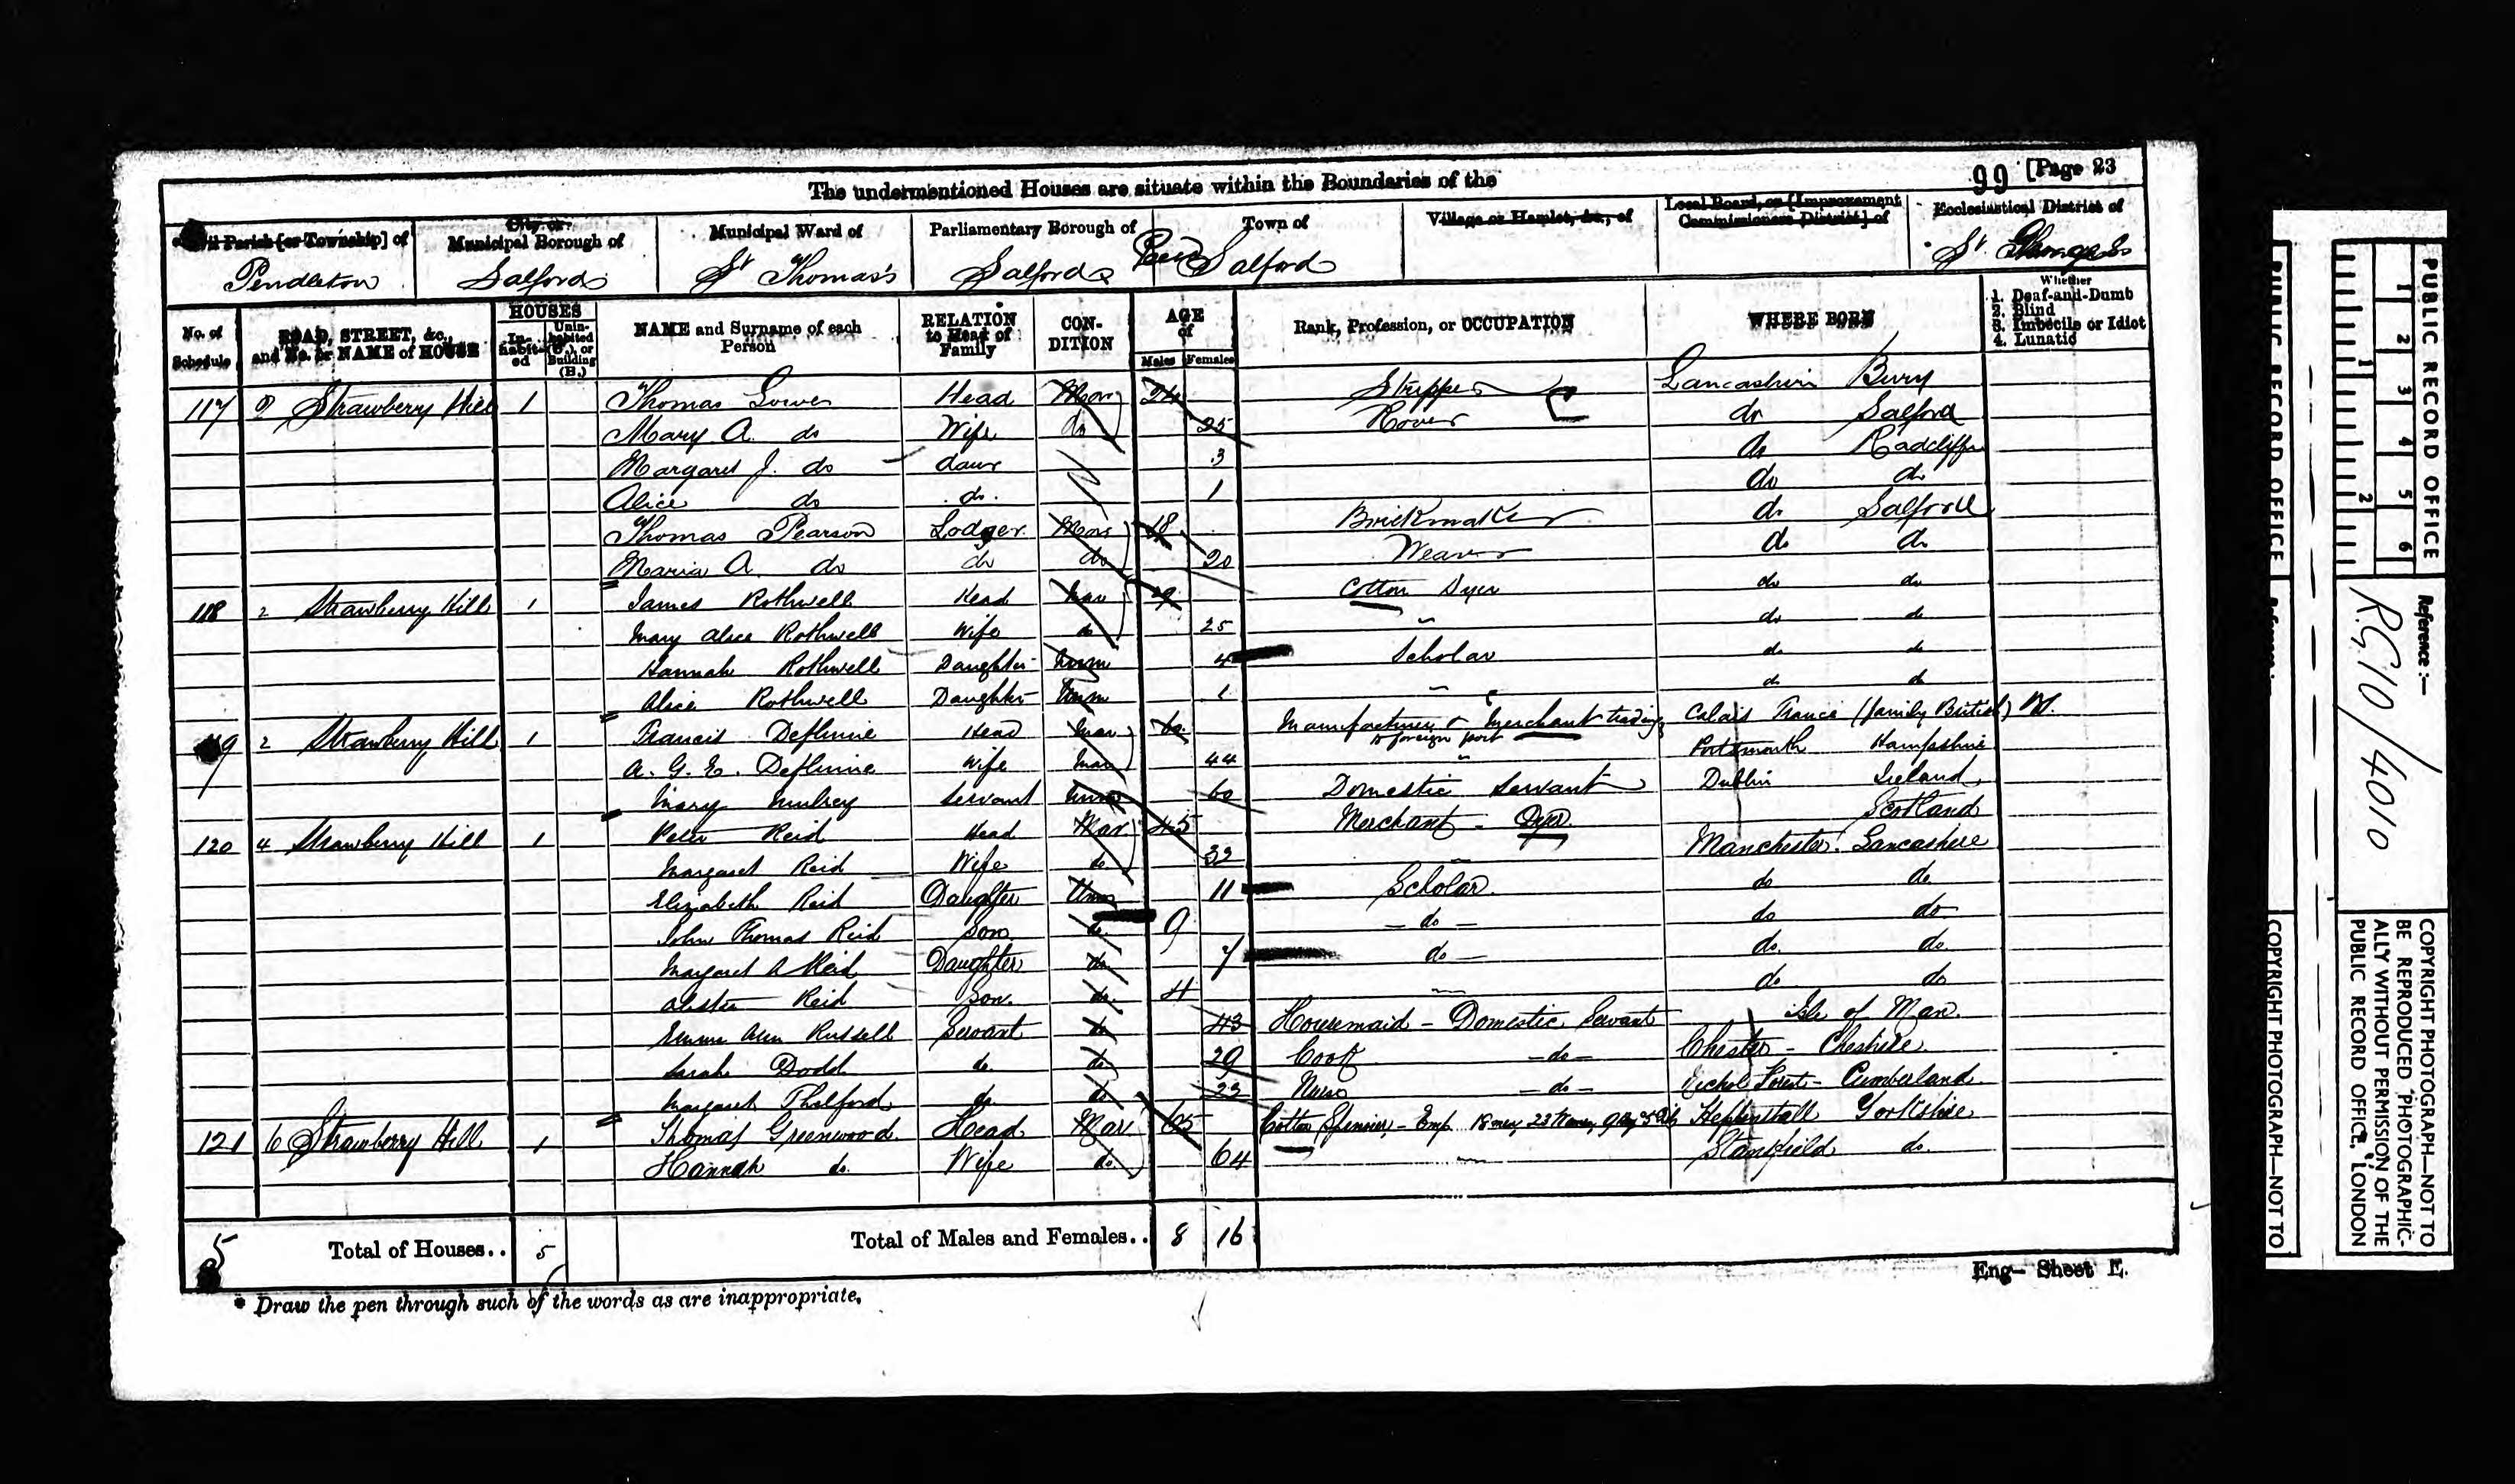 99 [Page 23
The undermentioned Houses are situate within the Boundaries of the
Civil Parish [or Township] of
City or Municipal Borough of
Municipal Ward of
Parliamentary Borough of
Town of
Village or Hamlet, &c., of
Local Board, or [Improvement Commissioners District] of
Ecclesiastical District of
Pendleton Salford St Thomas's Salford Salford St
No. of Schedule
ROAD, STREET, &c., and No. or NAME of HOUSE
HOUSES
In-habit-ed
Unin-habited (U.), or Building (B.)
NAME and Surname of each Person
RELATION to Head of Family
CON-DITION
AGE of
Males Females
Rank, Profession, or OCCUPATION
WHERE BORN
Whether
1. Deaf-and-Dumb
2. Blind
3. Imbecile or Idiot
4. Lunatic
117 2 Strawberry Hill 1 Thomas Head Mar 24 Stripper Lancashire Bury
Mary A. do Wife do 25 do Salford
Margaret J. do daur 3 do Radcliffe
Alice do do 1 do do
Thomas Pearson Lodger Mar 18 Brickmaker do Salford
Maria A. do do do 20 Weaver do do
118 2 Strawberry Hill 1 James Rothwell Head Mar 29 Cotton Dyer do do
Mary Alice Rothwell Wife do 25 " do do
Hannah Rothwell Daughter Unm 4 Scholar do do
Alice Rothwell Daughter Unm 1 " do do
119 2 Strawberry Hill 1 Francis Head Mar 60 Manufacturer & Merchant trading to foreign port Calais France (family British)
A. G. E. Wife Mar 44 " Portsmouth Hampshire
Mary Servant Unm 60 Domestic Servant Dublin Ireland
120 4 Strawberry Hill 1 Peter Reid Head Mar 45 Merchant - Dyer Scotland
Margaret Reid Wife do " Manchester Lancashire
Elizabeth Reid Daughter Unm 11 Scholar do do
John Thomas Reid Son do 9 - do - do do
Margaret A Reid Daughter do 7 do - do do
Reid Son do 4 " do do
Russell Servant do 43 Housemaid - Domestic Servant Isle of Man
Sarah Dodd do do 29 Cook - do - Chester - Cheshire
Margaret do do Nurse - do - Nichol Forest - Cumberland
121 6 Strawberry Hill 1 Thomas Greenwood Head Mar 65 Cotton Spinner - Emp 18 men, 23 Women, Heptonstall Yorkshire
Hannah do Wife do 64 " Stansfield do
5 Total of Houses.. 5 Total of Males and Females.. 8 16
Eng- Sheet E.
* Draw the pen through such of the words as are inappropriate.
PUBLIC RECORD OFFICE
1 2 3 4 5 6
1 2
Reference:-
R.G.10/4010
COPYRIGHT PHOTOGRAPH—NOT TO
BE REPRODUCED PHOTOGRAPHIC-
ALLY WITHOUT PERMISSION OF THE
PUBLIC RECORD OFFICE, LONDON
PUBLIC RECORD OFFICE
COPYRIGHT PHOTOGRAPH—NOT TO